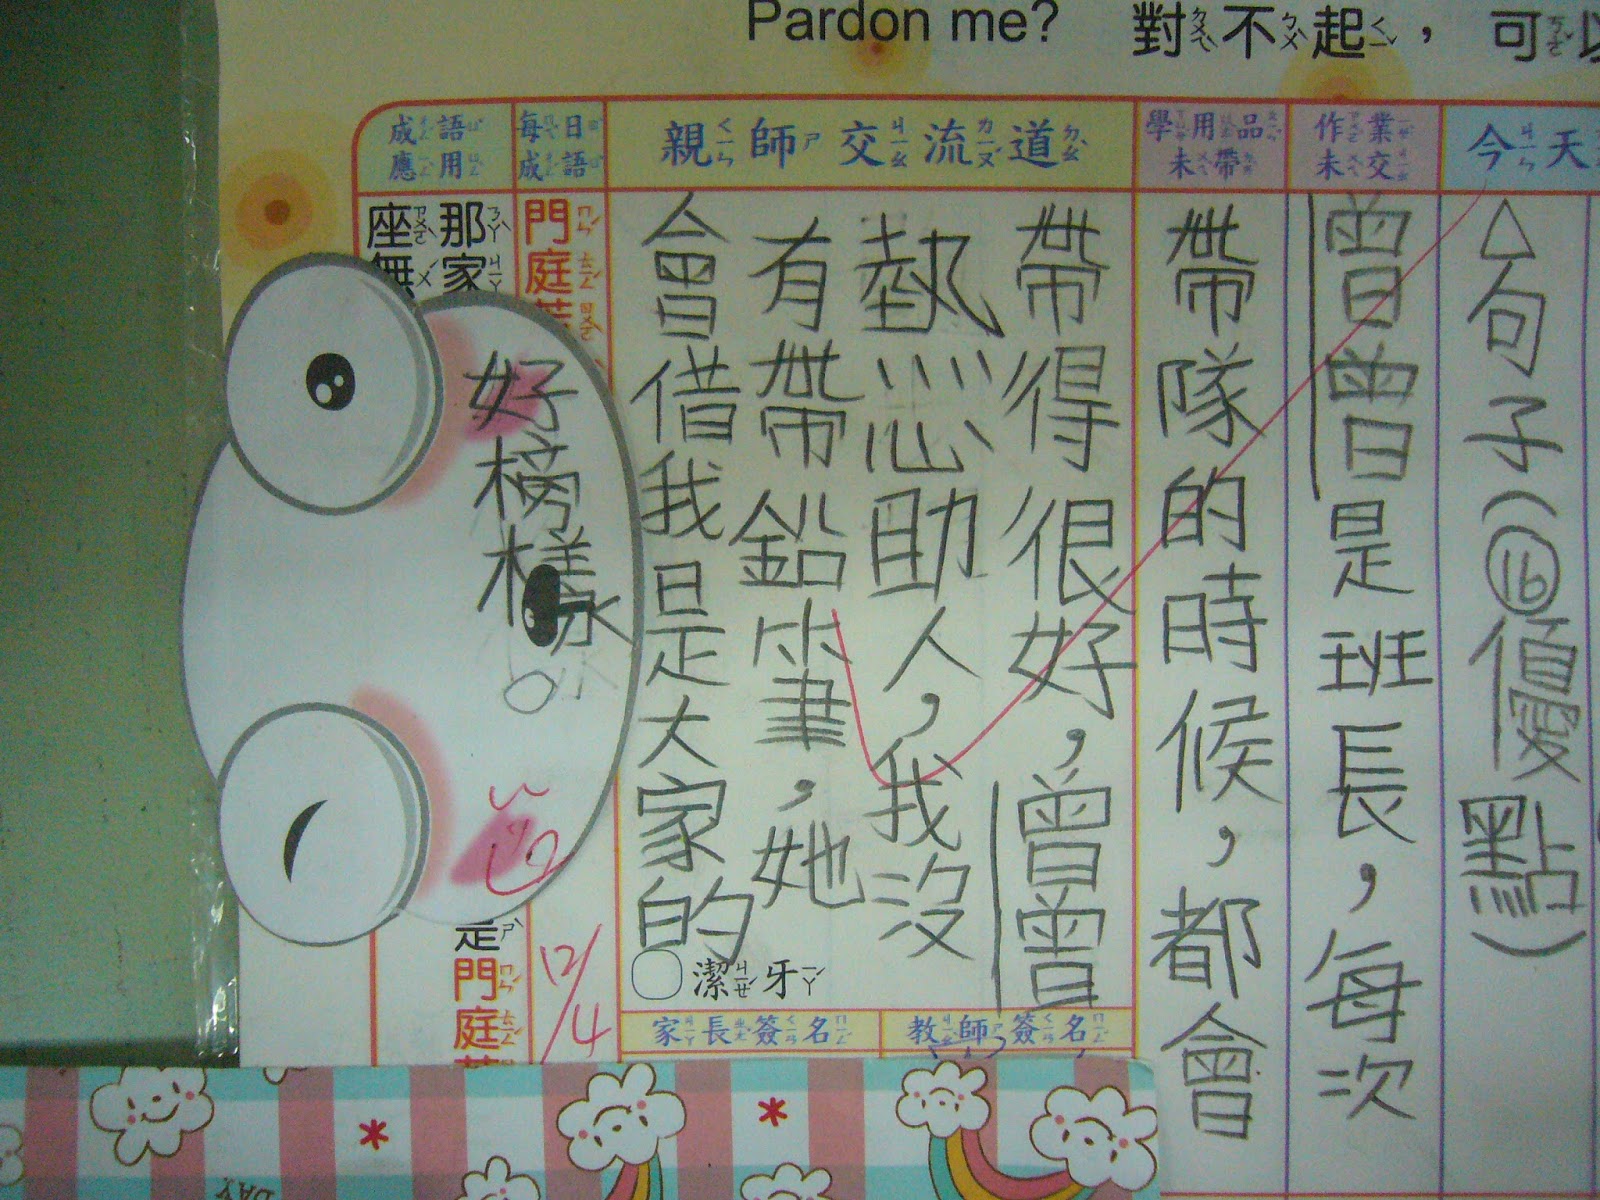 Pardon me? 對不起，可以
今天
作業未交
學用品未帶
親師交流道
每日成語
成語應用
△句子(⑯優點)
曾曾是班長，每次
帶隊的時候，都會
帶得很好，曾曾
熱心助人，我沒
有帶鉛筆，她
會借我是大家的
好榜樣。
門庭
那家
座無
是門庭
12/4
潔牙
家長簽名
教師簽名